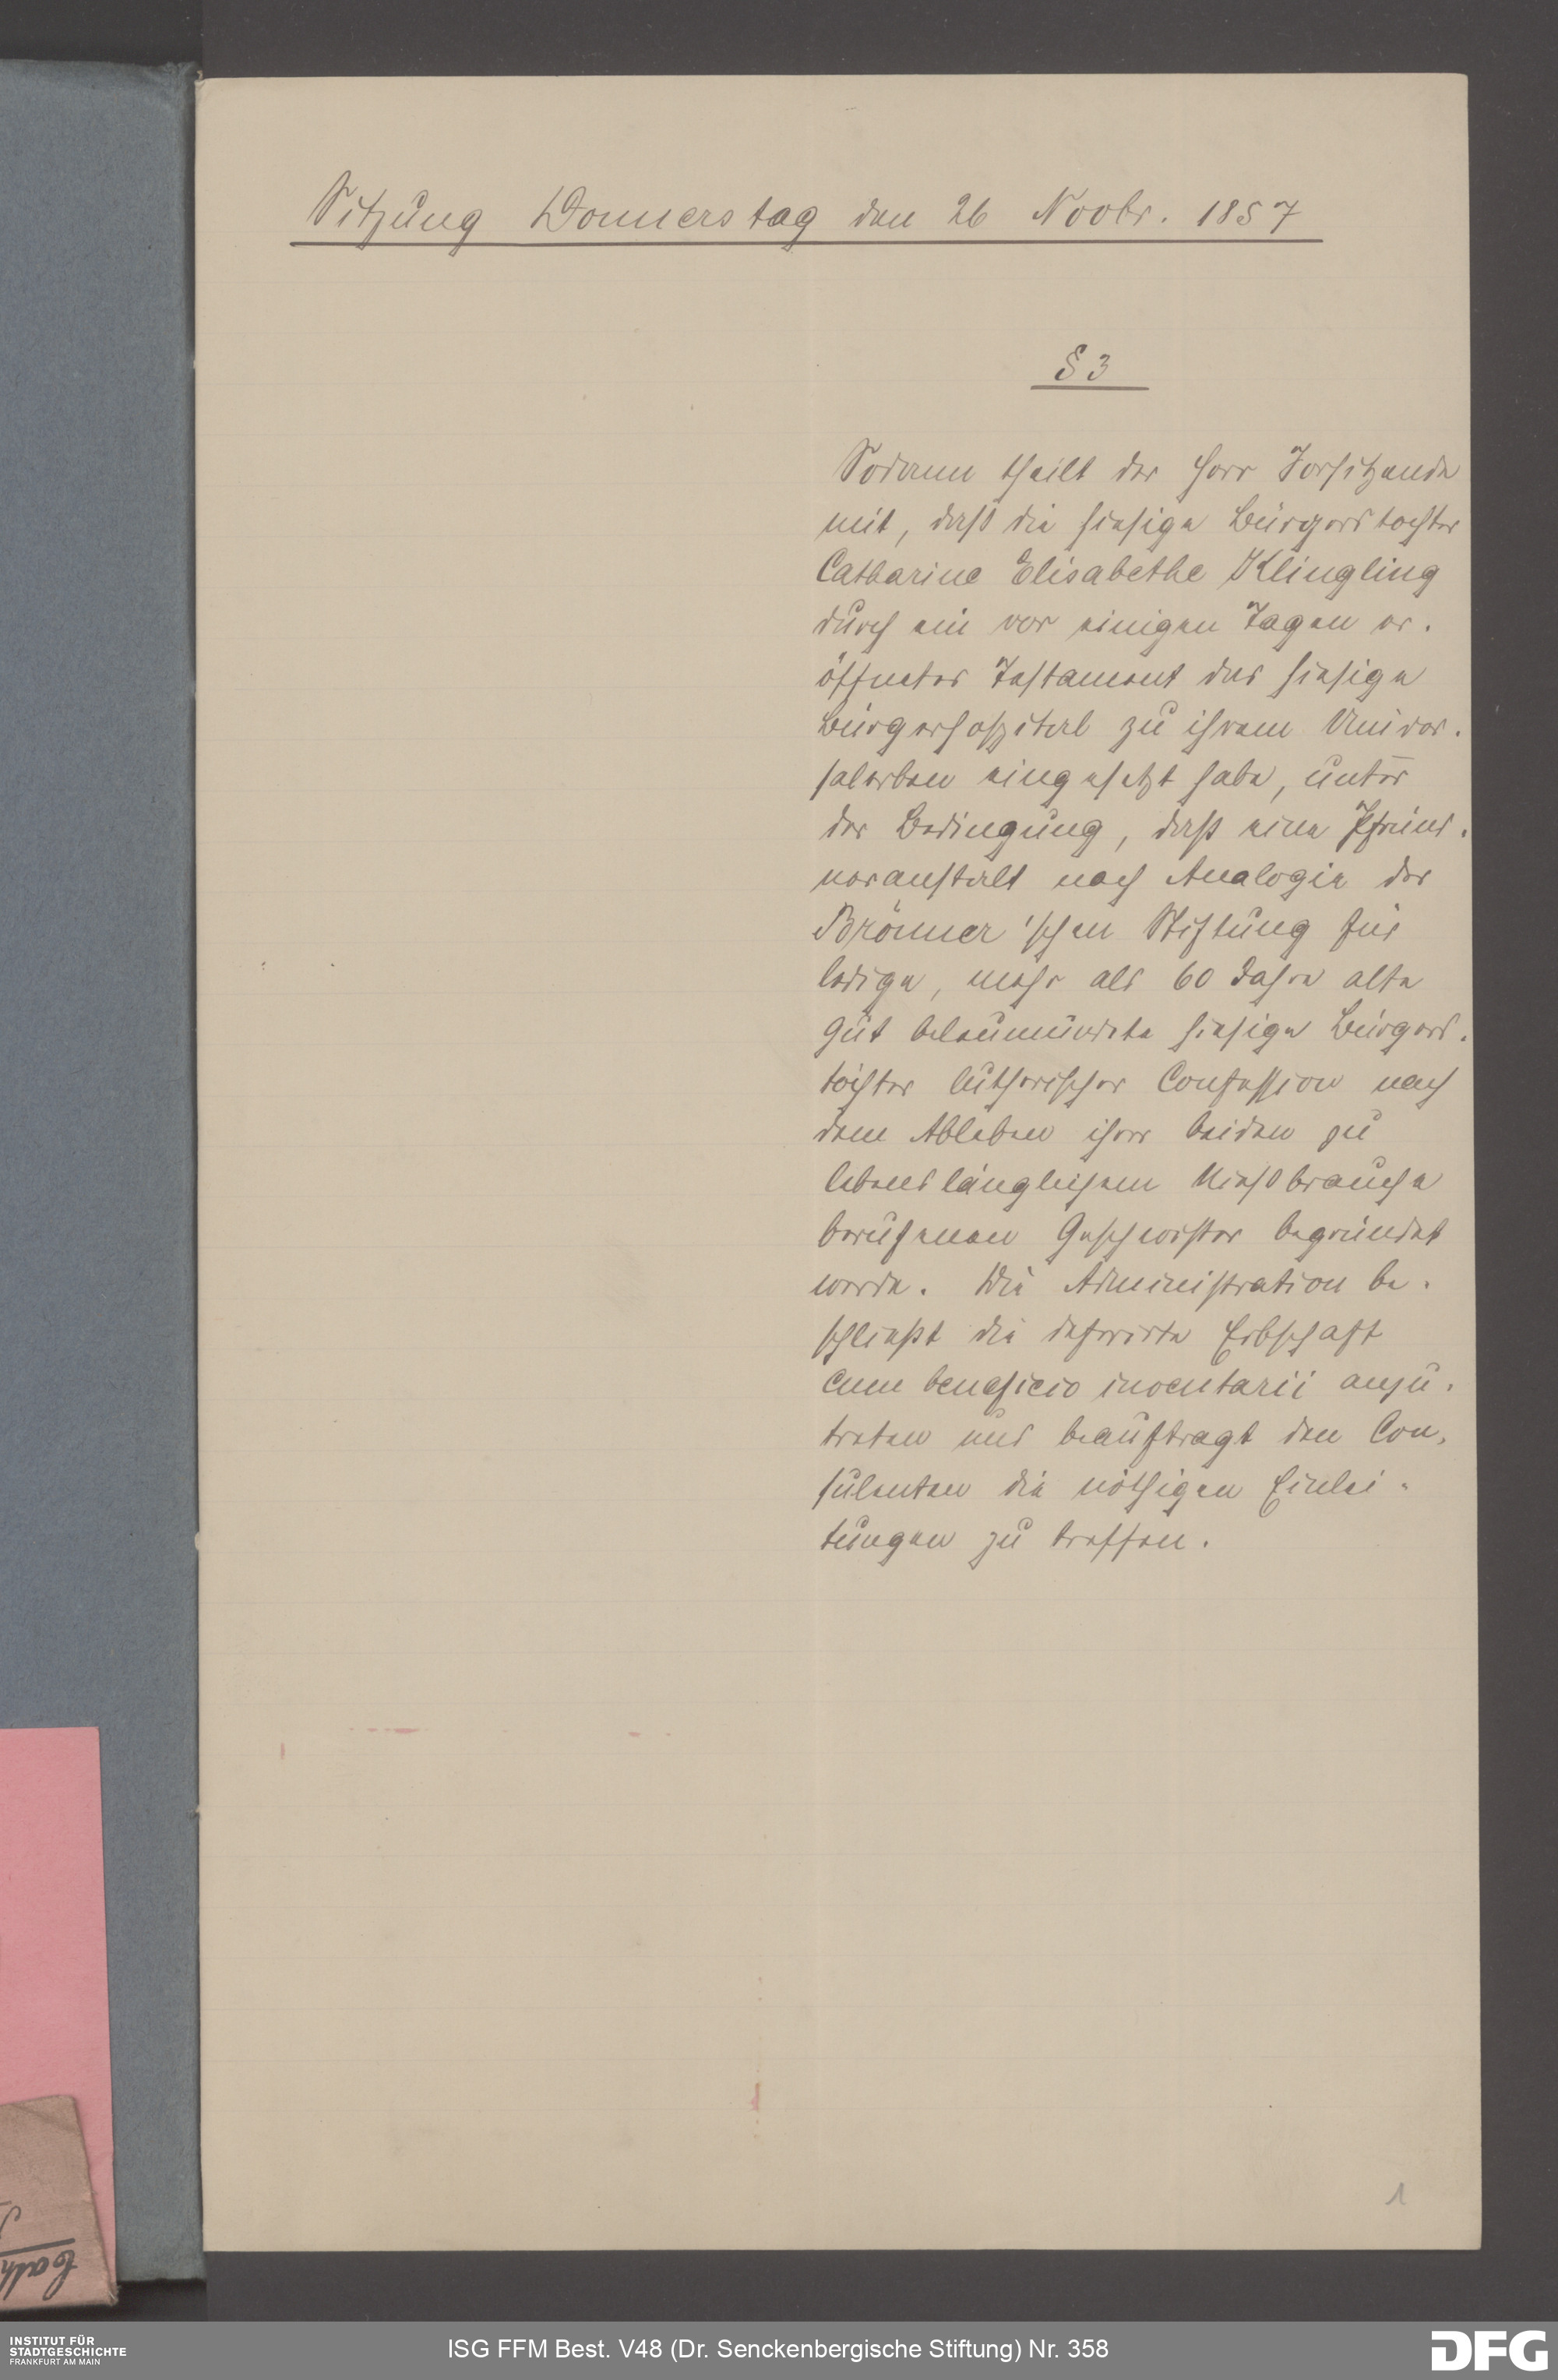 Sitzung Donnerstag den 26 Novbr. 1857
§ 3
Sodann theilt der Herr Vorsitzende
mit, daß die hiesige Bürgerstochter
Catharine Elisabethe Klingling
durch ein vor einigen Tagen er-
öffnetes Testament das hiesige
Bürgerhospital zu ihrem Univer-
salerben eingesetzt habe, unter
der Bedingung, daß eine Pfründ-
neranstalt nach Analogie der
Brönner'schen Stiftung für
ledige, mehr als 60 Jahre alte
gut beleumundete hiesige Bürgers-
töchter lutherischer Confession nach
dem Ableben ihrer beiden zu
lebenslänglichem Nießbrauche
berufenen Geschwister begründet
werde. Die Administration be-
schließt die deferirte Erbschaft
cum beneficio inventarii anzu-
treten und beauftragt den Con-
sulenten die nöthigen Einlei-
tungen zu treffen.
1
Cath
INSTITUT FÜR
STADTGESCHICHTE
FRANKFURT AM MAIN
ISG FFM Best. V48 (Dr. Senckenbergische Stiftung) Nr. 358
DFG